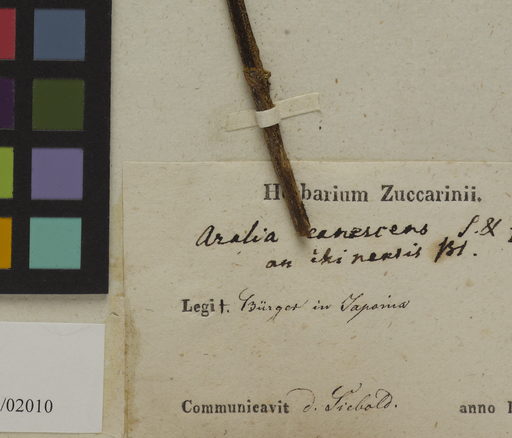 Herbarium Zuccarinii.
Aralia canescens S. &
an chinensis Bl.
Legit. Bürger in Japonia
Communicavit d. Siebold. anno
/02010